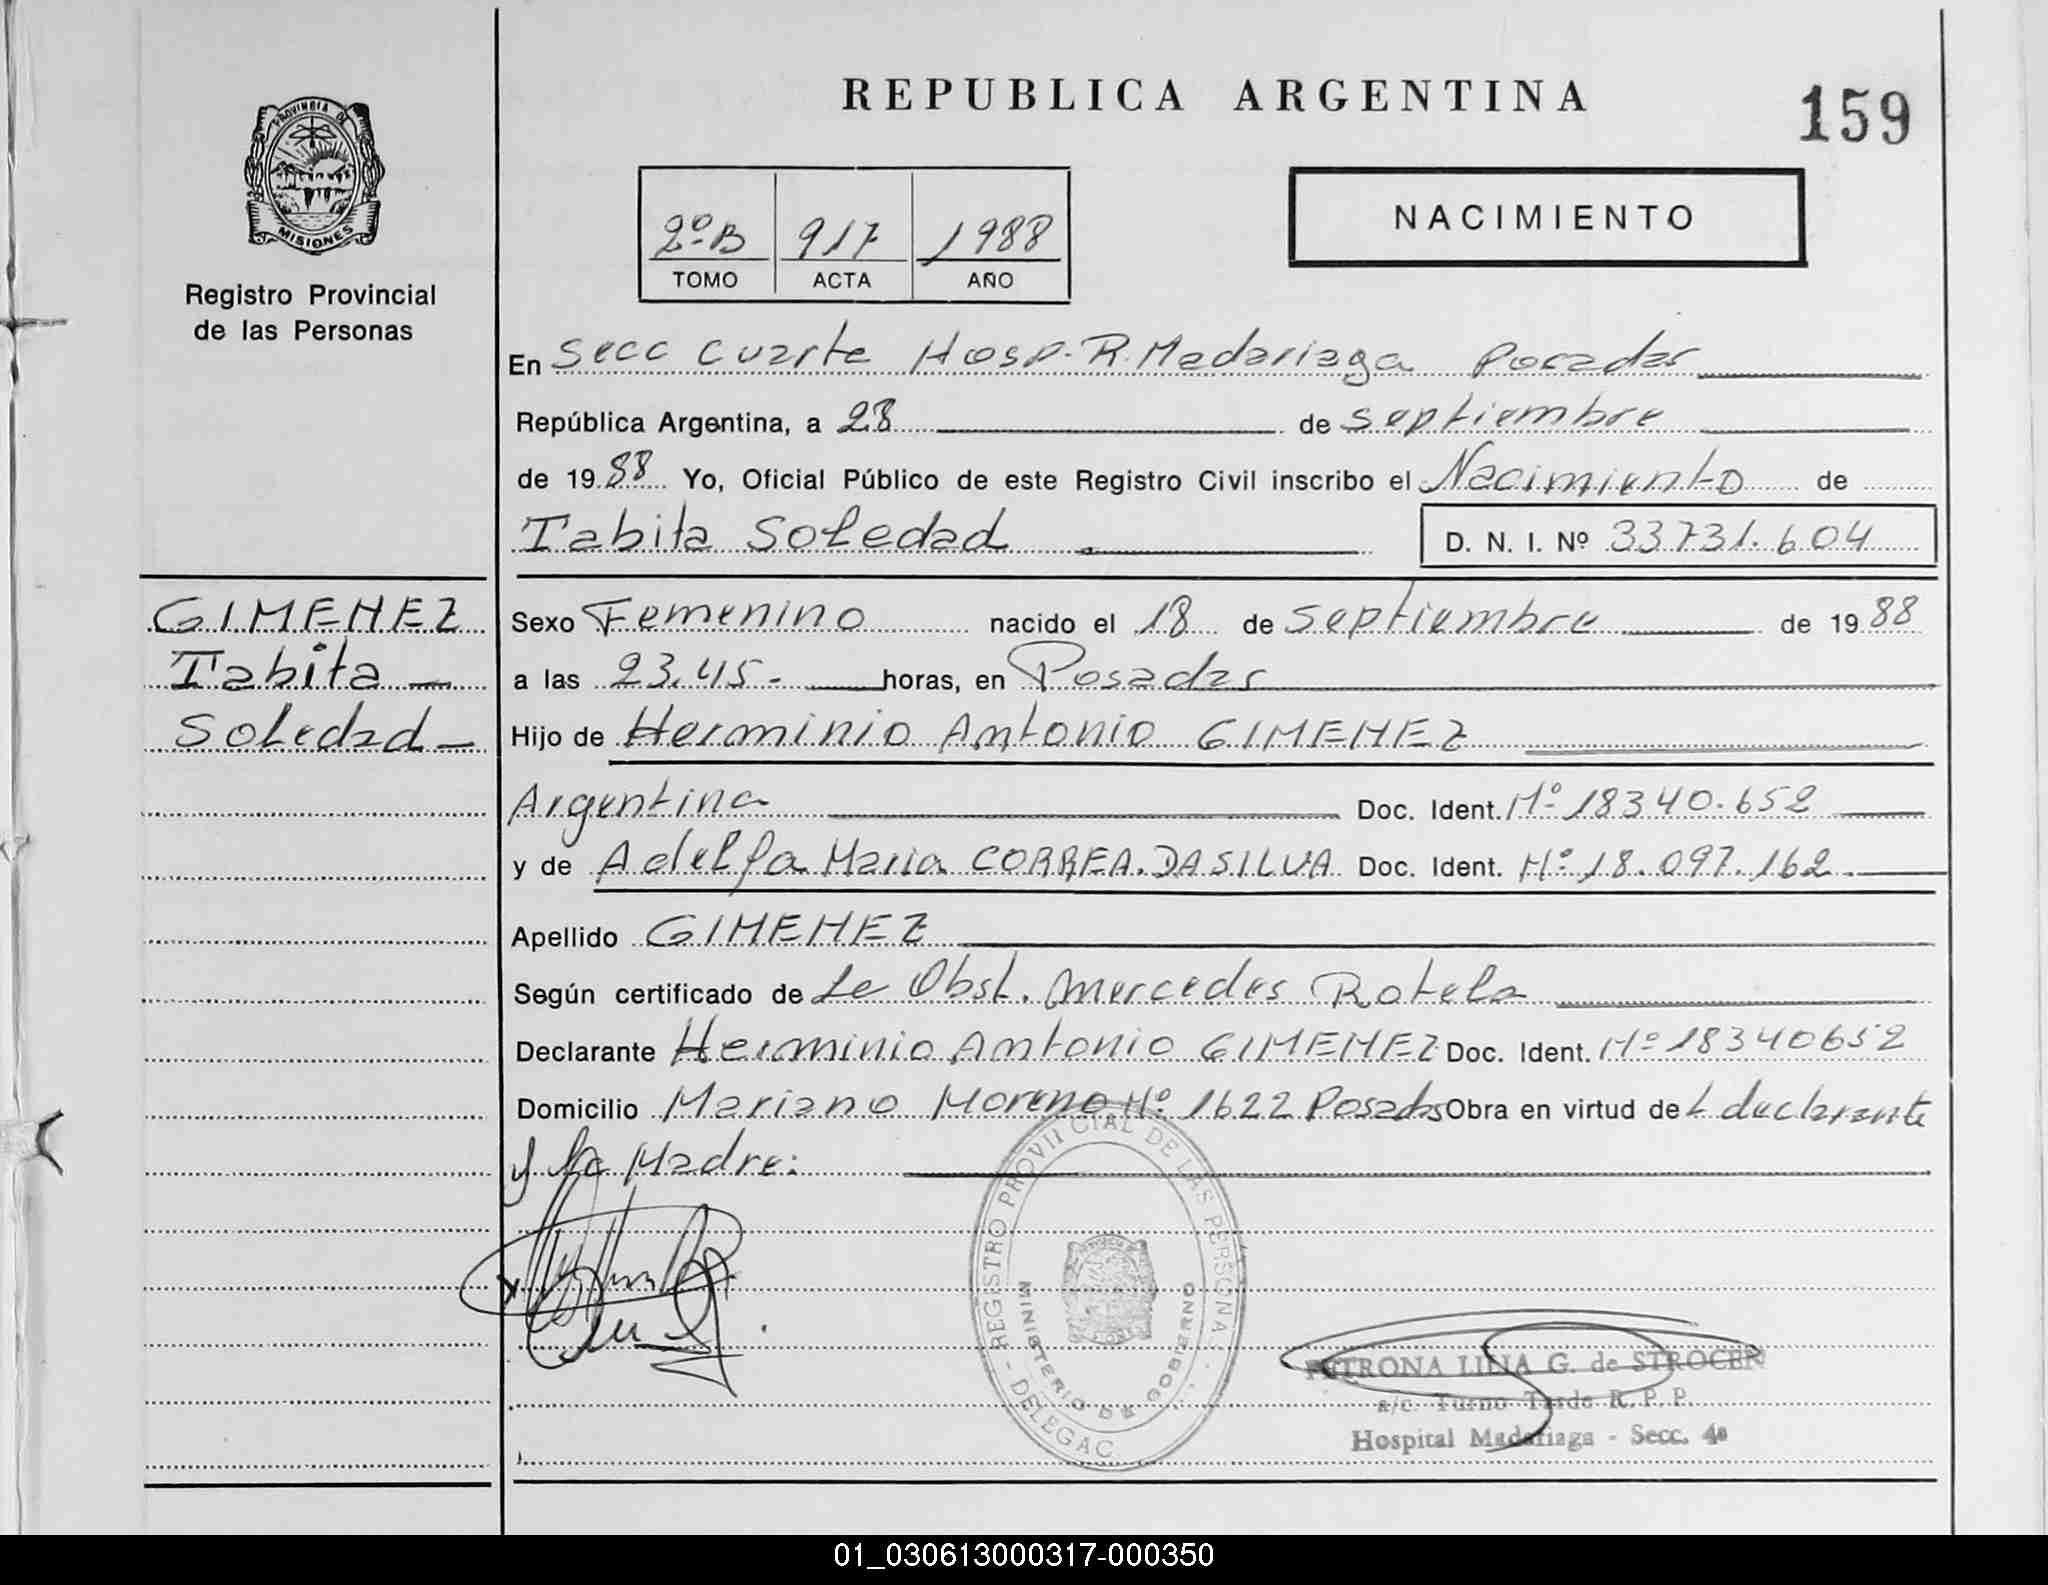 PROVINCIA DE
MISIONES
Registro Provincial
de las Personas
REPUBLICA ARGENTINA
159
2º B 917 1988
TOMO ACTA AÑO
NACIMIENTO
En Secc Cuarta Hosp. R. Madariaga Posadas
República Argentina, a 28 de septiembre
de 1988 Yo, Oficial Público de este Registro Civil inscribo el Nacimiento de
Tabita Soledad D. N. I. Nº 33731.604
GIMENEZ
Tabita
Soledad
Sexo Femenino nacido el 18 de septiembre de 1988
a las 23.45 - horas, en Posadas
Hijo de Herminio Antonio GIMENEZ
Argentina Doc. Ident. Nº 18340.652
y de Adelfa Maria CORREA.DASILVA Doc. Ident. Nº 18.097.162.
Apellido GIMENEZ
Según certificado de La Obst. Mercedes Rotela
Declarante Herminio Antonio GIMENEZ Doc. Ident. Nº 18340652
Domicilio Mariano Moreno Nº 1622 Posadas Obra en virtud de L declarante
y la Madre:
REGISTRO PROVINCIAL DE LAS PERSONAS - DELEGAC
MINISTERIO DE GOBIERNO
PETRONA LILIA G. de STROCEN
a/c. Turno Tarde R. P. P.
Hospital Madariaga - Secc. 4ª
01_030613000317-000350